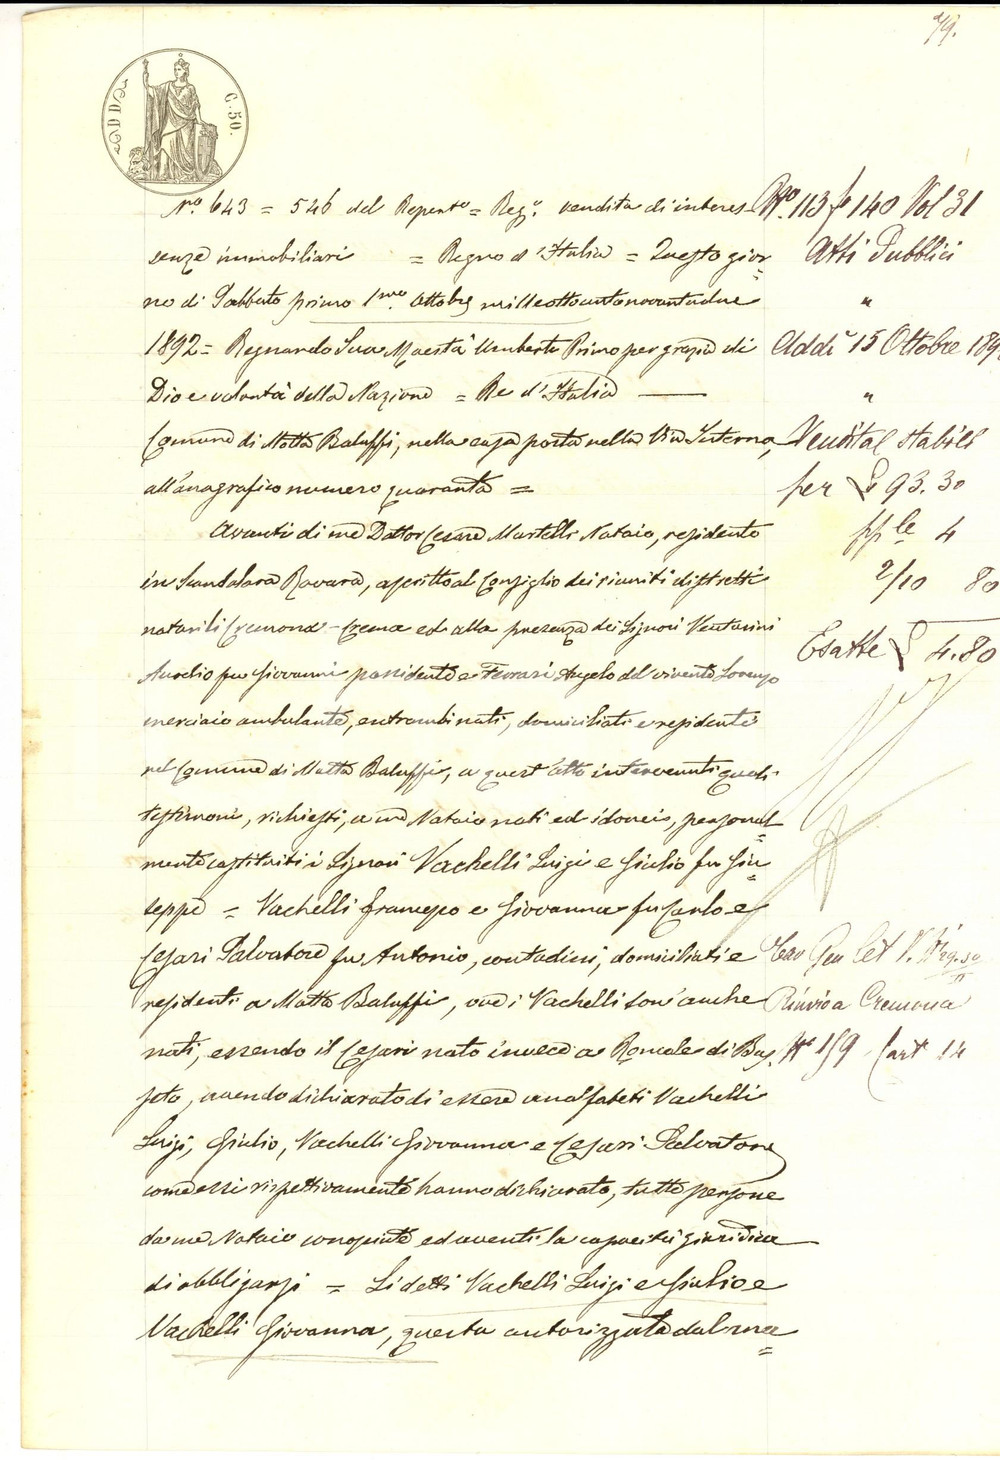 79.
ADDD
C. 50.
N.º 643 = 546 del Repert.º = Reg.º vendita di interes
senze immobiliari = Regno d'Italia = Questo gior=
no di Sabbato primo 1.mo Ottobre milleottocentonovantadue
1892 = Regnando Sua Maestà Umberto Primo per grazia di
Dio e volontà della Nazione = Re d'Italia
Comune di Motta Baluffi, nella casa posta nella Via Interna,
all'anagrafico numero quaranta =
Avanti di me Dottor Cesare Martelli Notaio, residente
in Scandolara Ravara, ascritto al Consiglio dei riuniti distretti
notarili Cremona-Crema ed alla presenza dei Signori Venturini
Aurelio fu Giovanni possidente e Ferrari Angelo del vivente Lorenzo
merciaio ambulante, entrambi nati, domiciliati e residenti
nel Comune di Motta Baluffi, a quest'atto intervenuti quali
testimoni, richiesti, a me Notaio noti ed idonei, personal=
mente costituiti i Signori Vachelli Luigi e Giulio fu Giu=
seppe = Vachelli Francesco e Giovanna fu Carlo e
Cesari Salvatore fu Antonio, contadini, domiciliati e
residenti a Motta Baluffi, ove i Vachelli son'anche
nati, essendo il Cesari nato invece a Roncole di Bus
seto, avendo dichiarato di essere analfabeti Vachelli
Luigi, Giulio, Vachelli Giovanna e Cesari Salvatore
come essi rispettivamente hanno dichiarato, tutte persone
da me Notaio conosciute ed aventi la capacità giuridica
di obbligarsi = Li detti Vachelli Luigi e Giulio e
Vachelli Giovanna, questa autorizzata dal ma=
N.º 113 fo 140 Vol 31
Atti Pubblici
"
Addì 15 Ottobre 189
"
Vendita stabili
per £ 93.30
pple 4
2/10 80
Esatte £ 4.80
Rinvio a Cremona
N.º 159 Cart 14